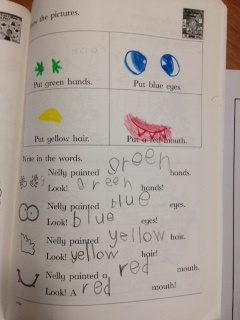 the pictures.
Put green hands.
Put blue eyes.
Put yellow hair.
Put a red mouth.
Write in the words.
Nelly painted green hands.
Look! green hands!
Nelly painted blue eyes.
Look! blue eyes!
Nelly painted yellow hair.
Look! yellow hair!
Nelly painted a red mouth.
Look! A red mouth!